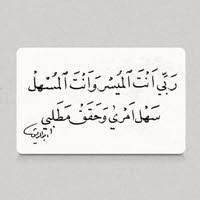 رَبِّي أَنْتَ الْمُيَسِّرُ وَأَنْتَ الْمُسَهِّلْ
سَهِّلْ أَمْرِي وَحَقِّقْ مَطْلَبِي